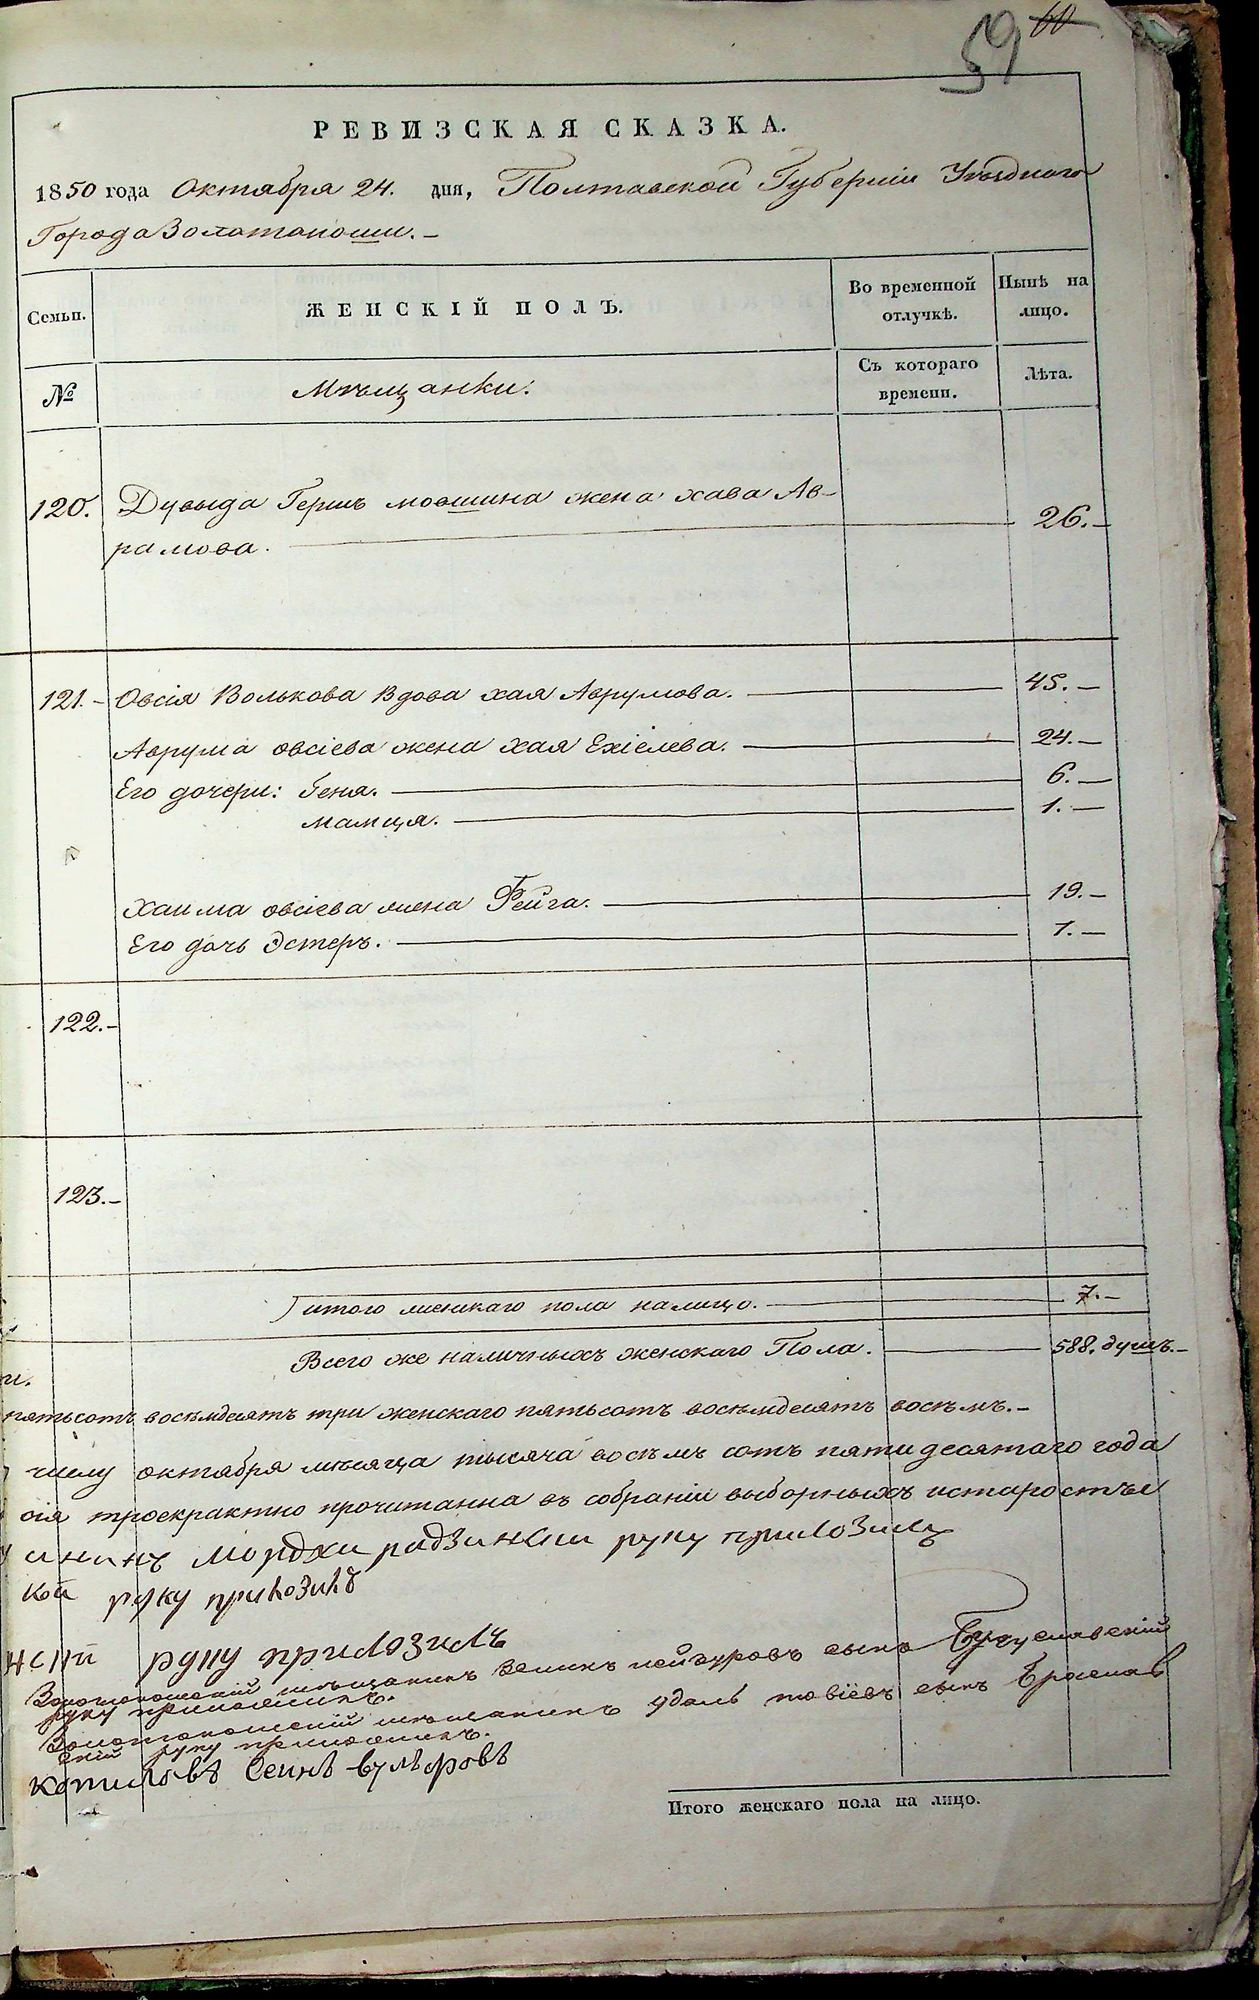 59 60
РЕВИЗСКАЯ СКАЗКА.
1850 года Октября 24. дня, Полтавской Губерніи Уѣзднаго
Города Золотоноши.-
Семьи.
ЖЕНСКІЙ ПОЛЪ.
Во временной
отлучкѣ.
Нынѣ на
лицо.
№
Мѣщанки:
Съ котораго
времени.
Лѣта.
120. Дувыда Гершъ мовшина жена хава Ав-
рамова. 26.-
121.- Овсія Волькова вдова хая Аврумова. 45.-
Аврума овсіева жена хая Ехіелева. 24.-
Его дочери: Геня. 6.-
мамця. 1.-
Хаима овсіева жена Фейга. 19.-
Его дочь Эстеръ. 1.-
122.-
123.-
итого женскаго пола налицо. 7.-
Всего же наличныхъ женскаго Пола. 588. душъ.-
и.
пятьсотъ восемдесятъ три женскаго пятьсотъ восемдесятъ восемъ.-
числу октября мѣсяца тысяча восемъ сотъ пятидесятаго года
сія троекрактно прочитанна въ собраніи выборныхъ истаростъи
Мордхи радзинскій руку приложилъ
кой руку приложилъ
нскій руку приложилъ
Золотоношскій мѣщанинъ сынъ Бугуславскій
руку приложилъ.
Золотоношскій мѣщанинъ удаль товіевъ сынъ Браслав
скій руку приложилъ.
Итого женскаго пола на лицо.